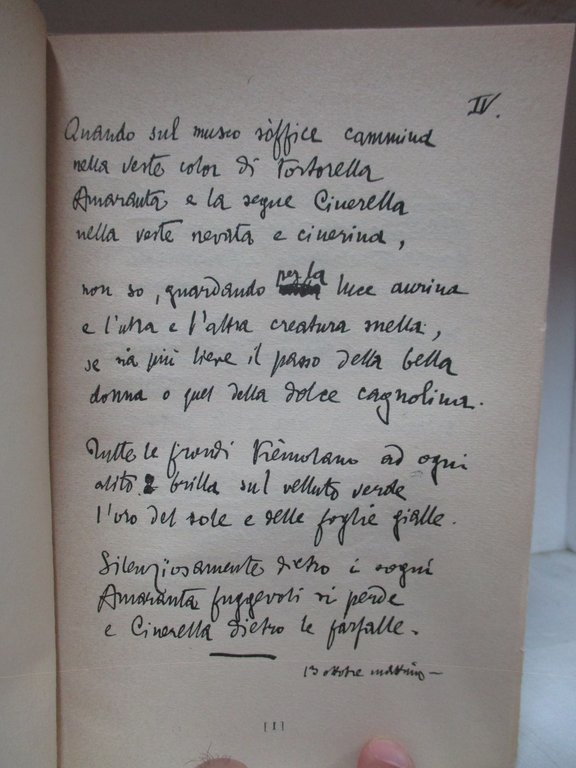 IV.
Quando sul musco sòffice cammina
nella veste color di tortorella
Amaranta e la segue Cinerella
nella veste nevata e cinerina,
non so, guardando per la luce aurina
e l'una e l'altra creatura snella,
se sia più lieve il passo della bella
donna o quel della dolce cagnolina.
Tutte le frondi trèmolano ad ogni
alito e brilla sul velluto verde
l'oro del sole e delle foglie gialle.
Silenziosamente dietro i sogni
Amaranta fuggevoli si perde
e Cinerella dietro le farfalle.
13 ottobre mattino
[1]